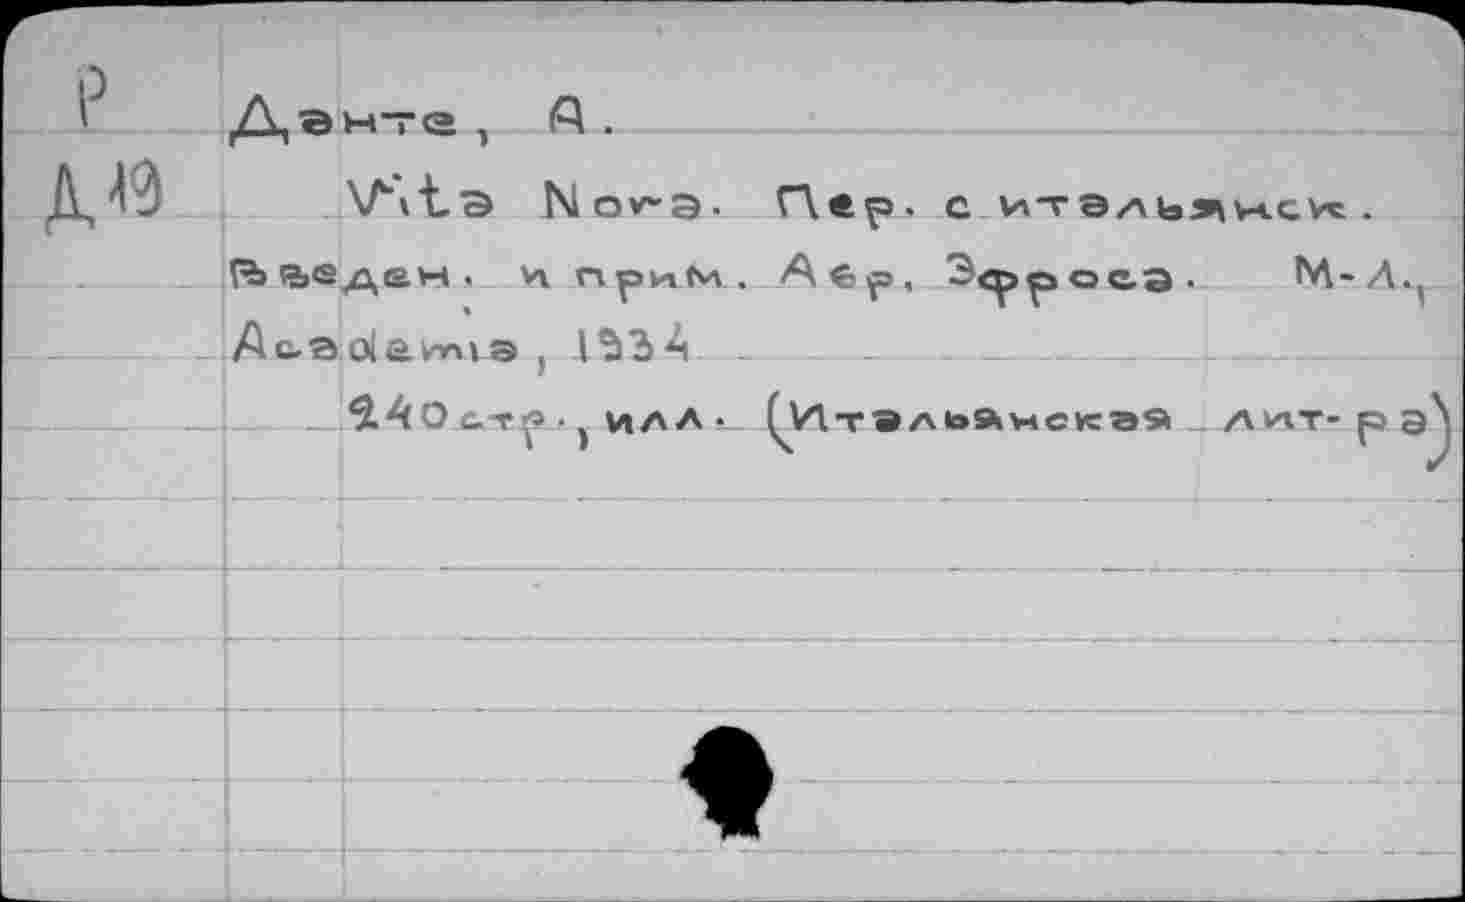 Р
Д19
Данте, А.
Vita Nova. Пер. с итальянск.
Введен. и прим. Абр. Эфроса. М-Л.,
Academia, 1934
240 стр., илл. (Итальянская лит-ра)